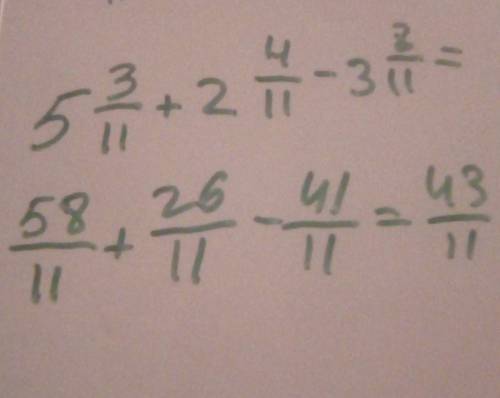 5 3/11 + 2 4/11 - 3 8/11 =
58/11 + 26/11 - 41/11 = 43/11